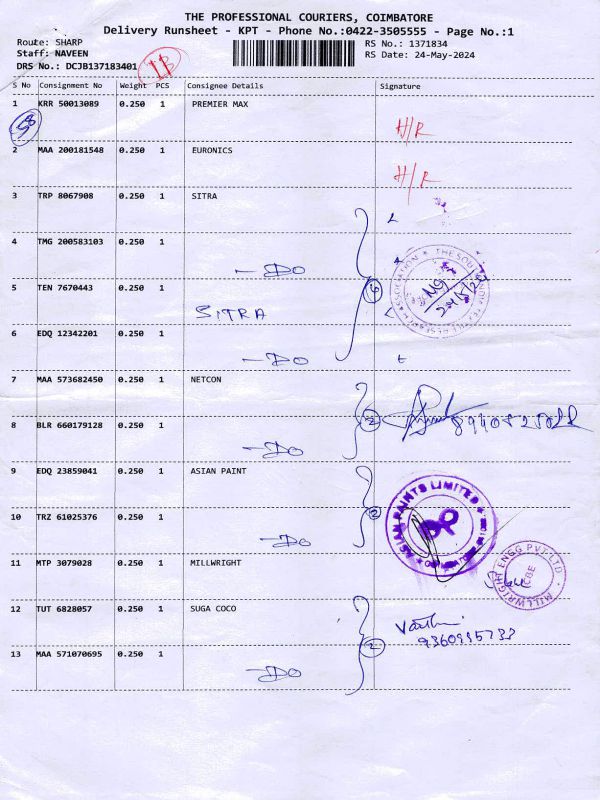 THE PROFESSIONAL COURIERS, COIMBATORE
Delivery Runsheet - KPT - Phone No.:0422-3505555 - Page No.:1
Route: SHARP
Staff: NAVEEN
DRS No.: DCJB137183401
RS No.: 1371834
RS Date: 24-May-2024
13
S No Consignment No Weight PCS Consignee Details Signature
1 KRR 50013089 0.250 1 PREMIER MAX
H/R
2 MAA 200181548 0.250 1 EURONICS
H/R
3 TRP 8067908 0.250 1 SITRA
4 TMG 200583103 0.250 1
—DO
5 TEN 7670443 0.250 1
SITRA
6
6 EDQ 12342201 0.250 1
—DO
7 MAA 573682450 0.250 1 NETCON
2
8 BLR 660179128 0.250 1
—DO
9 EDQ 23859041 0.250 1 ASIAN PAINT
ASIAN PAINTS LIMITED
2
10 TRZ 61025376 0.250 1
—DO
11 MTP 3079028 0.250 1 MILLWRIGHT
MILLWRIGHT ENGG PVT.LTD
CBE
12 TUT 6828057 0.250 1 SUGA COCO
2
13 MAA 571070695 0.250 1
—DO